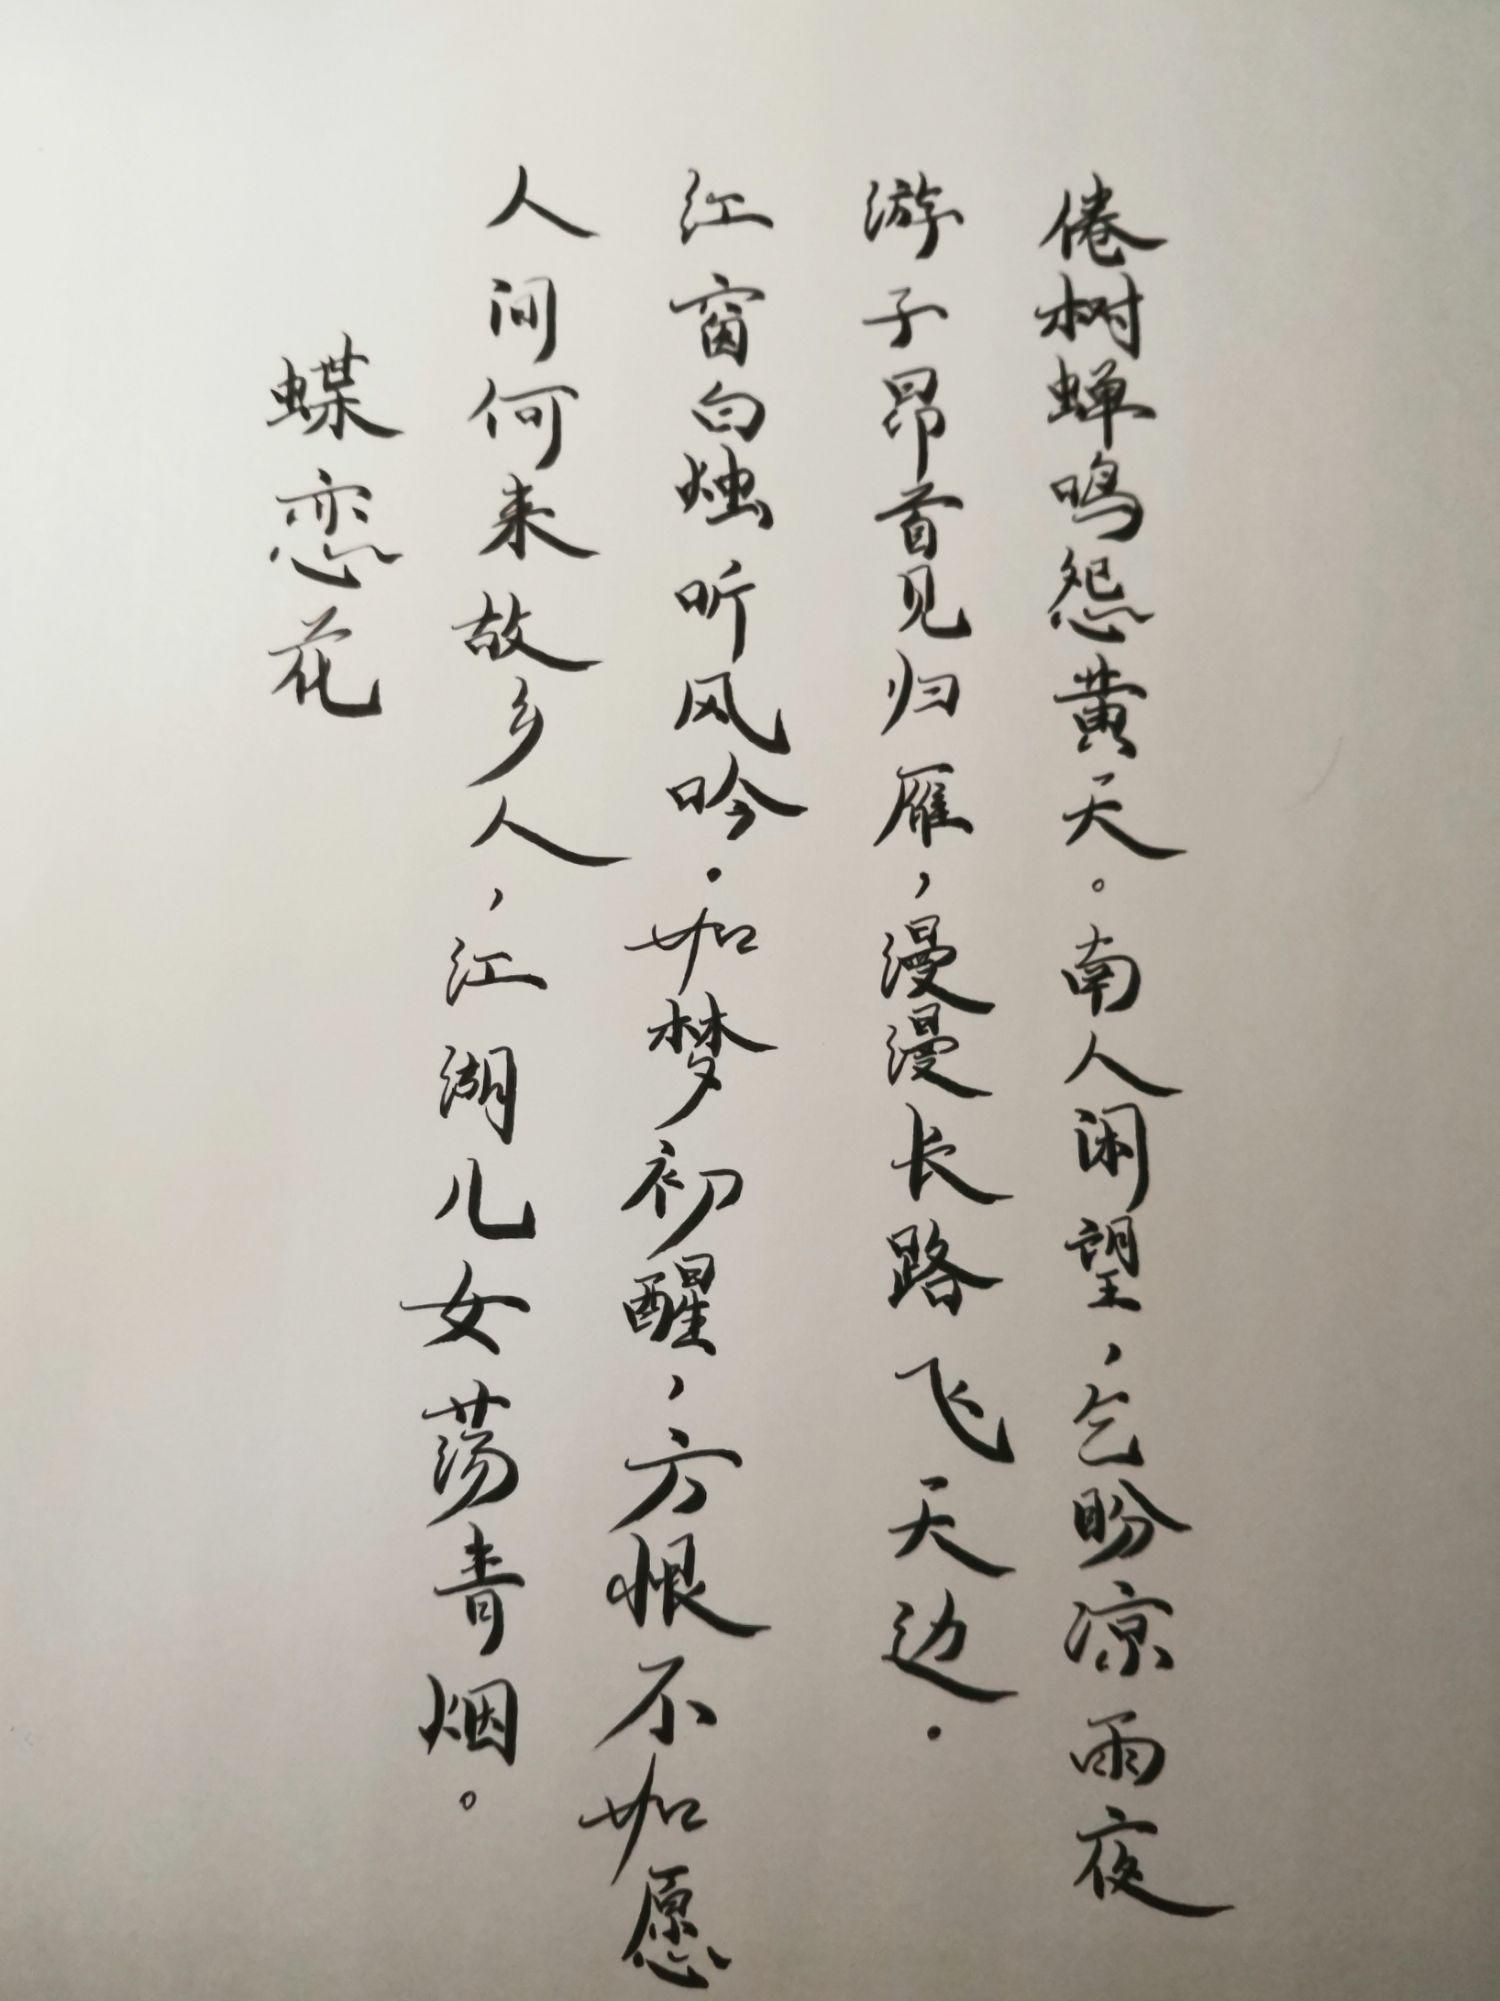 倦树蝉鸣怨黄天。南人闲望，乞盼凉雨夜
游子昂首见归雁，漫漫长路飞天边.
江窗白烛听风吟.如梦初醒，六恨不如愿
人间何来故乡人，江湖儿女荡青烟。
蝶恋花